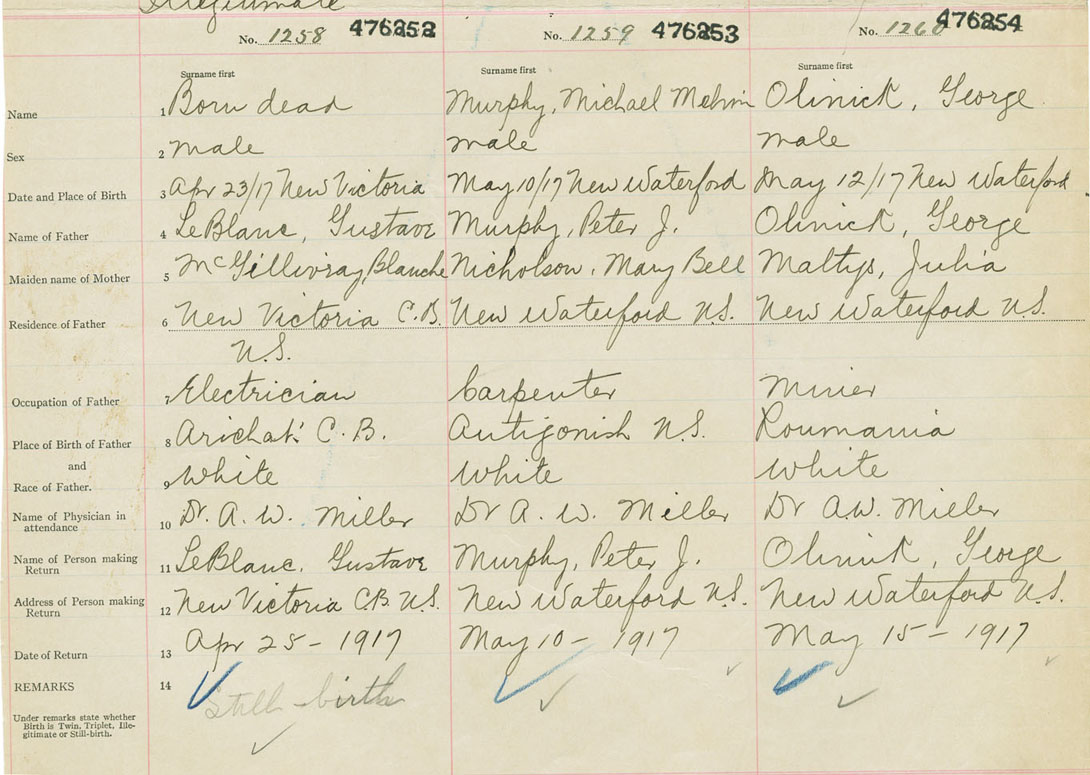 Illegitimate
No. 1258 476252 No. 1259 476253 No. 1260 476254
Surname first Surname first Surname first
Name 1 Born dead Murphy, Michael Olinick, George
Sex 2 male male male
Date and Place of Birth 3 Apr 23/17 New Victoria May 10/17 New Waterford May 12/17 New Waterford.
Name of Father 4 LeBlanc, Gustave Murphy, Peter J. Olinick, George
Maiden name of Mother 5 McGillivray, Blanche Nicholson, Mary Bell Maltys, Julia
Residence of Father 6 New Victoria C.B. New Waterford N.S. New Waterford N.S.
N.S.
Occupation of Father 7 Electrician Carpenter Miner
Place of Birth of Father 8 Arichat C.B. Antigonish N.S. Roumania
and
Race of Father. 9 White White White
Name of Physician in 10 Dr. A. W. Miller Dr A. W. Miller Dr A.W. Miller
attendance
Name of Person making 11 LeBlanc, Gustave Murphy, Peter J. Olinick, George
Return
Address of Person making 12 New Victoria C.B. N.S. New Waterford N.S. New Waterford N.S.
Return
Date of Return 13 Apr 25 - 1917 May 10 - 1917 May 15 - 1917
REMARKS 14 Still-birth
Under remarks state whether
Birth is Twin, Triplet, Ille-
gitimate or Still-birth.